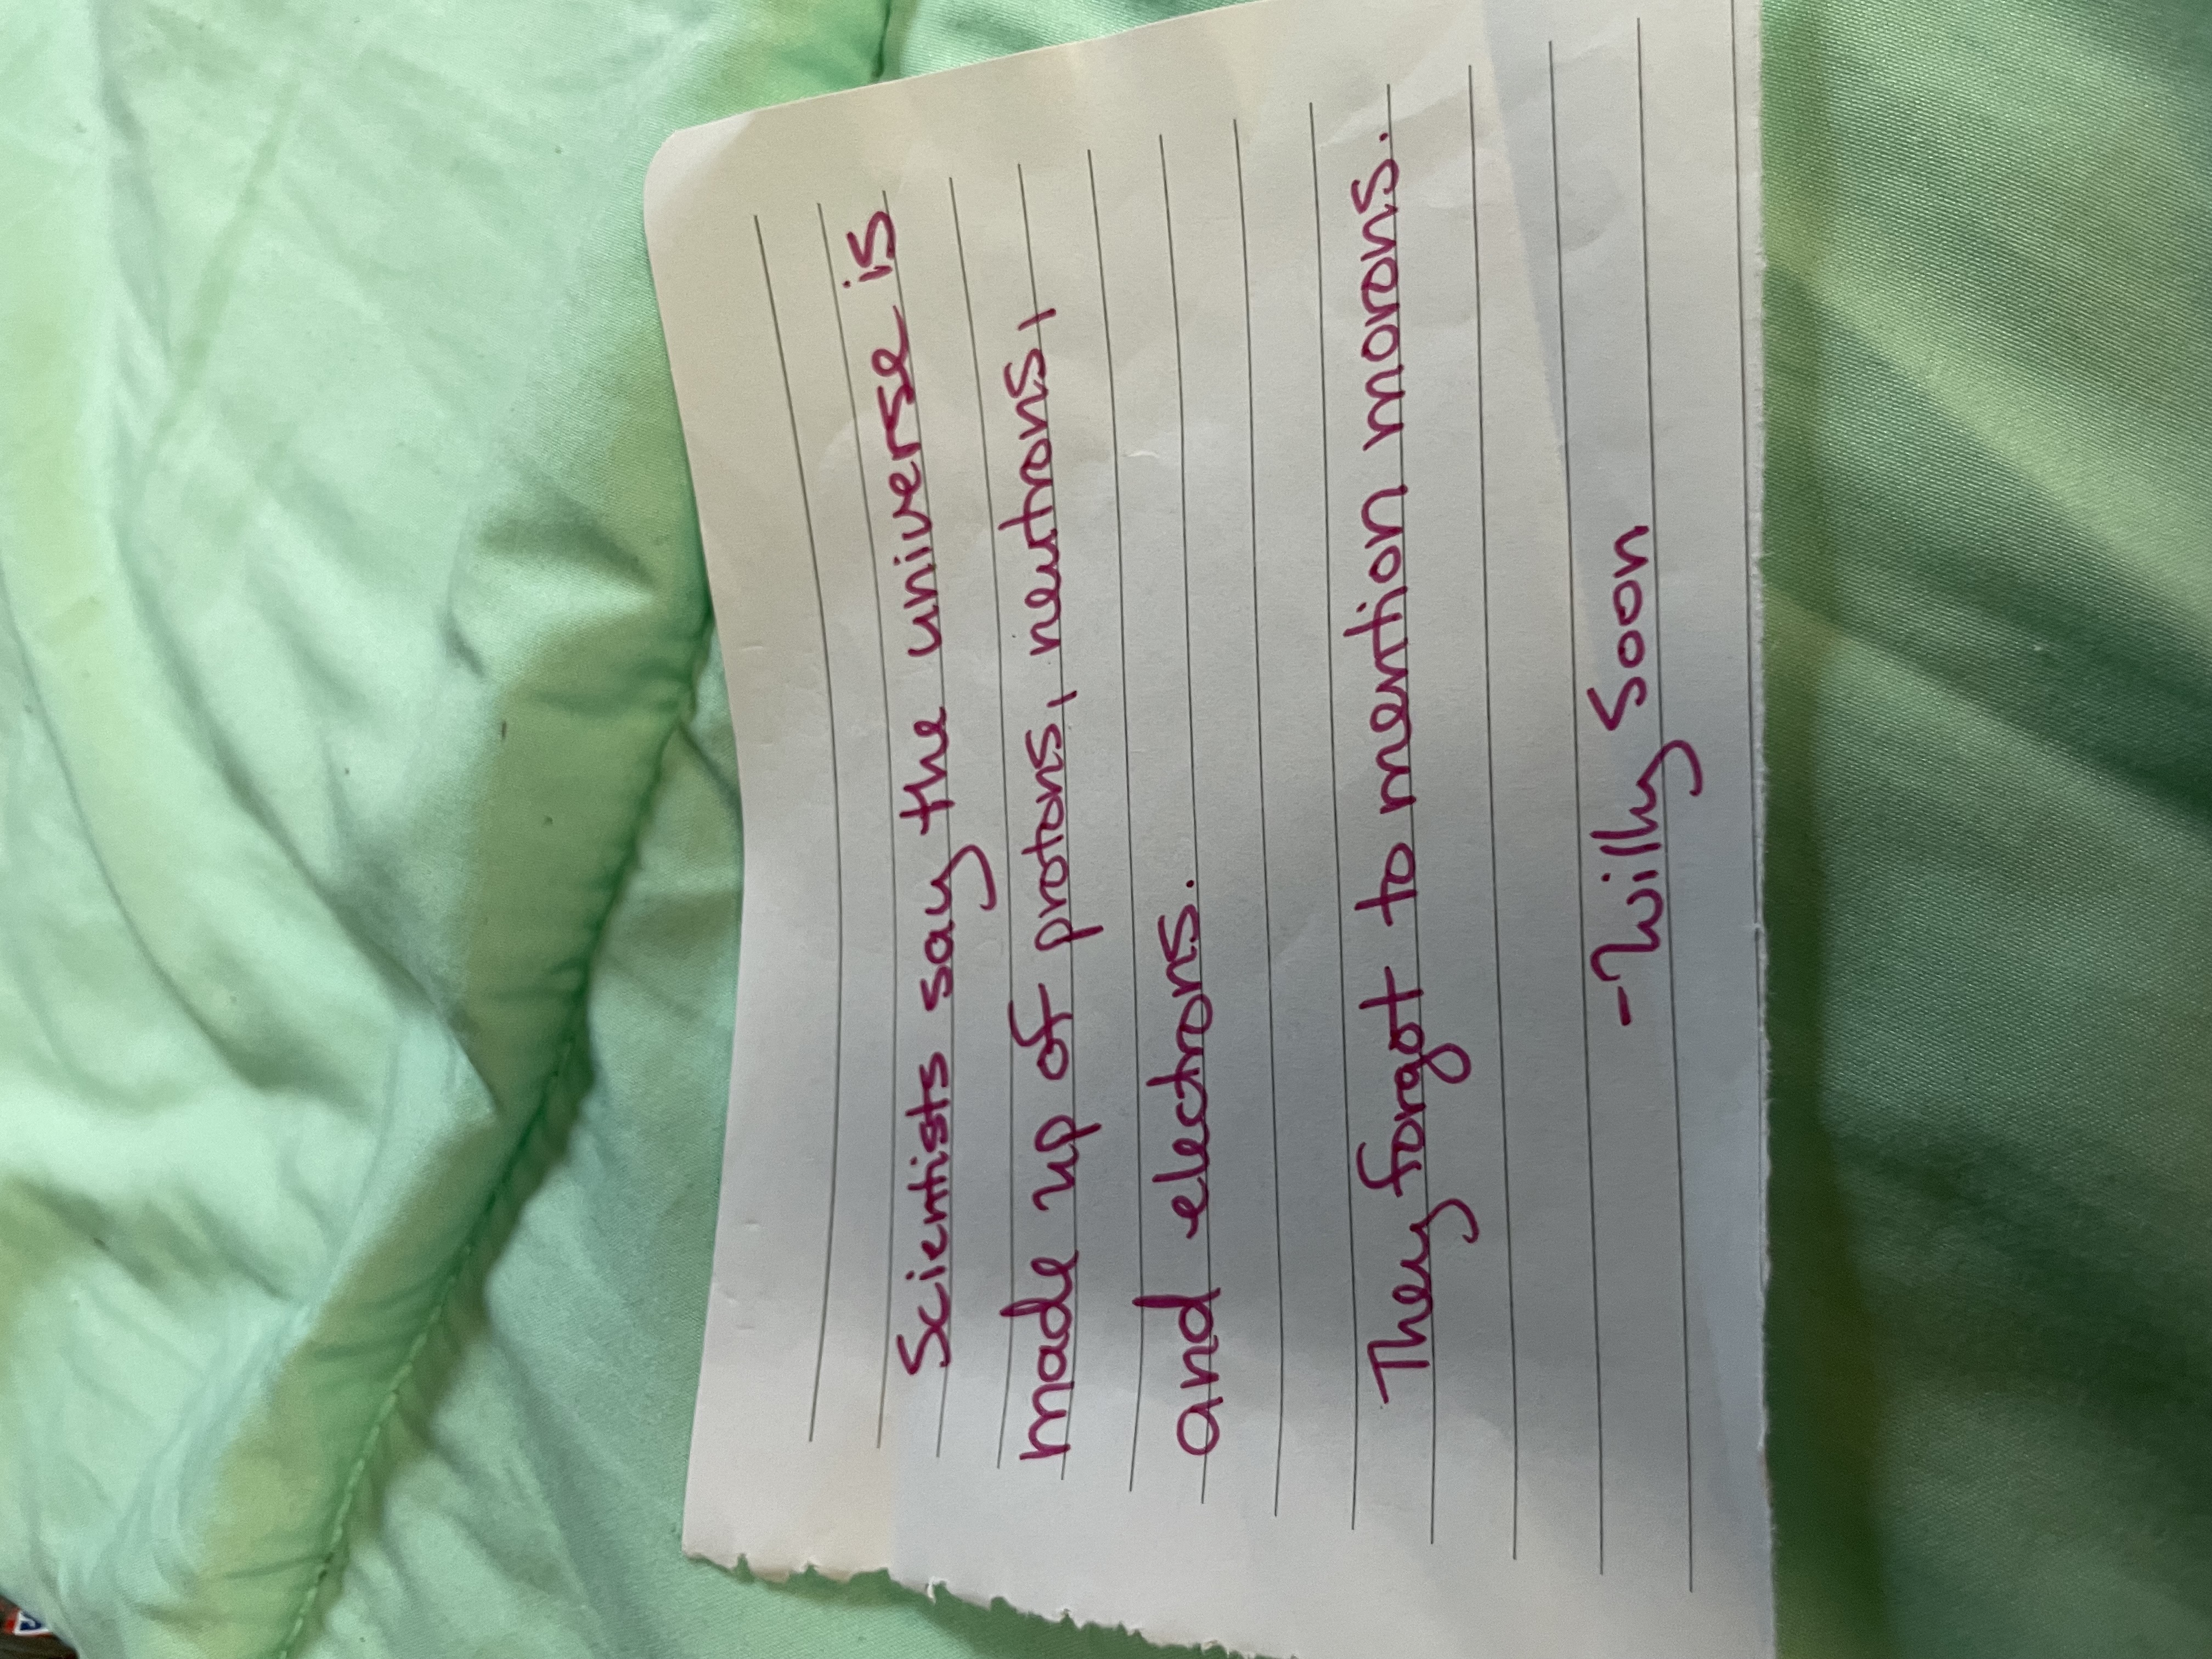 Scientists say the universe is
made up of protons, neutrons,
and electrons.
They forgot to mention morons.
-Willy Soon